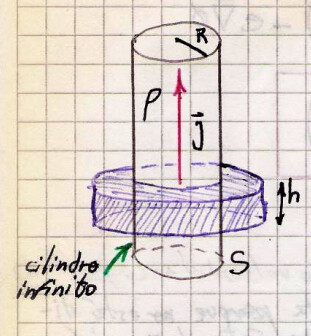 R
ρ
j
h
cilindro
infinito
S